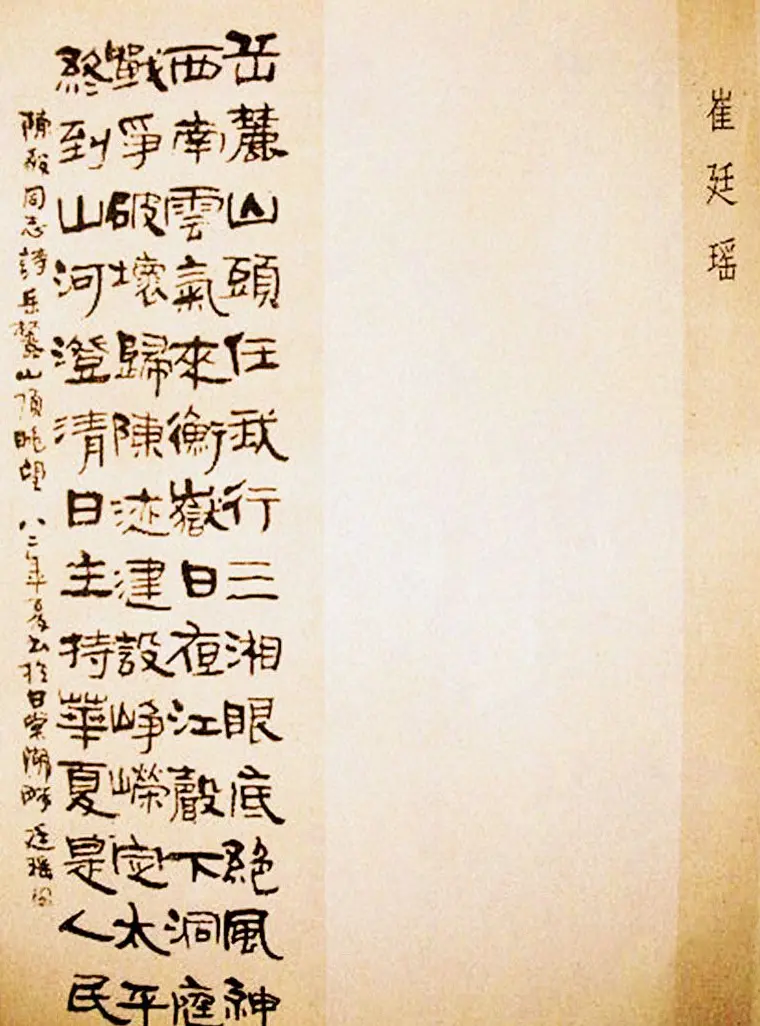 崔廷瑶
岳麓山頭任我行三湘眼底絕風神
西南雲氣來衡嶽日夜江聲下洞庭
戰爭破壞歸陳迹建設崢嶸定太平
終到山河澄清日主持華夏是人民
陳毅同志詩岳麓山頂眺望 八二年夏书於甘棠湖畔 廷瑶